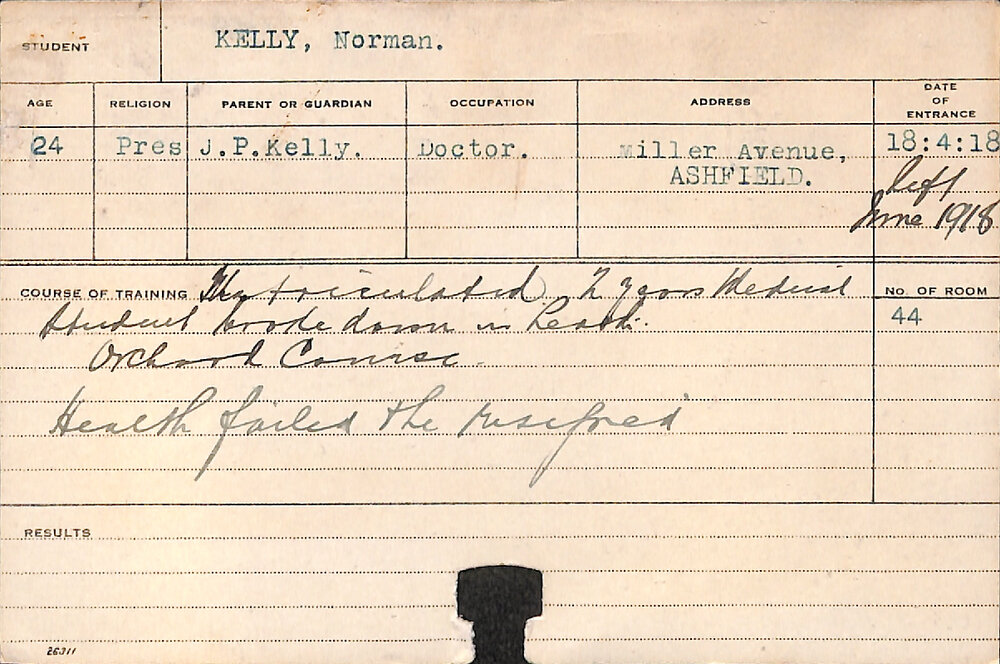 STUDENT KELLY, Norman.
AGE RELIGION PARENT OR GUARDIAN OCCUPATION ADDRESS DATE OF ENTRANCE
24 Pres J.P.Kelly. Doctor. Miller Avenue, 18:4:18
ASHFIELD.
left
June 1918
COURSE OF TRAINING Matriculated. 2 years Medical
Student broke down in health.
Orchard Course.
Health failed & he resigned
No. OF ROOM
44
RESULTS
26311